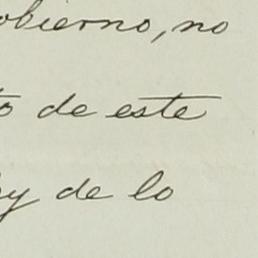 obierno, no
to de este
y de lo